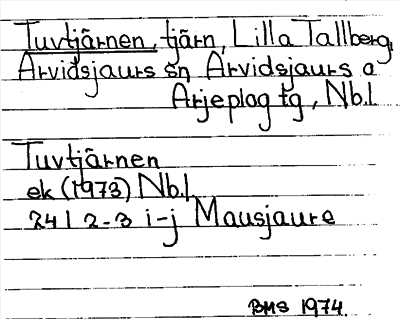 Tuvtjärnen, tjärn, Lilla Tallberg,
Arvidsjaurs sn Arvidsjaurs o
Arjeplog tg, Nb.l.
Tuvtjärnen
ek (1973) Nb.l.
24 I 2-3 i-j Mausjaure
BMS 1974